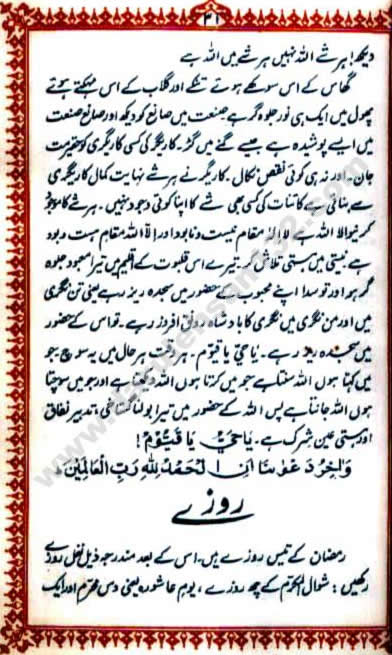 ۳۱
دیکھ! ہر شے اللہ نہیں ہر شے میں اللہ ہے
گھاس کے اس سوکھے ہوئے تنکے اور گلاب کے اس مہکتے ہوئے
پھول میں ایک ہی نور جلوہ گر ہے صنعت میں صانع کو دیکھ اور صانع صنعت
میں ایسے پوشیدہ ہے جیسے گنے میں گڑ۔ کاریگر کی کسی کاریگری کو حقیر مت
جان۔ اور نہ ہی کوئی نقص نکال۔ کاریگر نے ہر شے نہایت کمال کاریگری
سے بنائی ہے کائنات کی کسی بھی شے کا اپنا کوئی وجود نہیں۔ ہر شے کا موجد
کرنیوالا اللہ ہے لا الٰہ مقام نیست و نابود اور الا اللہ مقام ہست و بود
ہے نیستی میں ہستی تلاش کر۔ تیرے اس قلبوت کے اقلیم میں تیرا معبود جلوہ
گر ہو اور تو سدا اپنے محبوب کے حضور میں سجدہ ریز رہے یعنی تن نگری
میں اور من نگری میں نگری کا بادشاہ رونق افروز رہے۔ تو اس کے حضور
میں سجدہ ریز رہے۔ یا حی یا قیوم۔ ہر وقت ہر حال میں یہ سوچ جو
میں کہتا ہوں اللہ سنتا ہے جو میں کرتا ہوں اللہ دیکھتا ہے اور جو میں سوچتا
ہوں اللہ جانتا ہے پس اللہ کے حضور میں تیرا بولنا گستاخی، تدبیر نفاق
اور ہستی عین شرک ہے۔ یَا حَیُّ یَا قَیُّوْمُ!
وَاٰخِرُ دَعْوٰنَا اَنِ الْحَمْدُ لِلّٰہِ رَبِّ الْعَالَمِیْنَ
روزے
رمضان کے تیس روزے ہیں۔ اس کے بعد مندرجہ ذیل نفل روزے
رکھیں: شوال المکرم کے چھ روزے، یوم عاشورہ یعنی دس محرم اور ایک